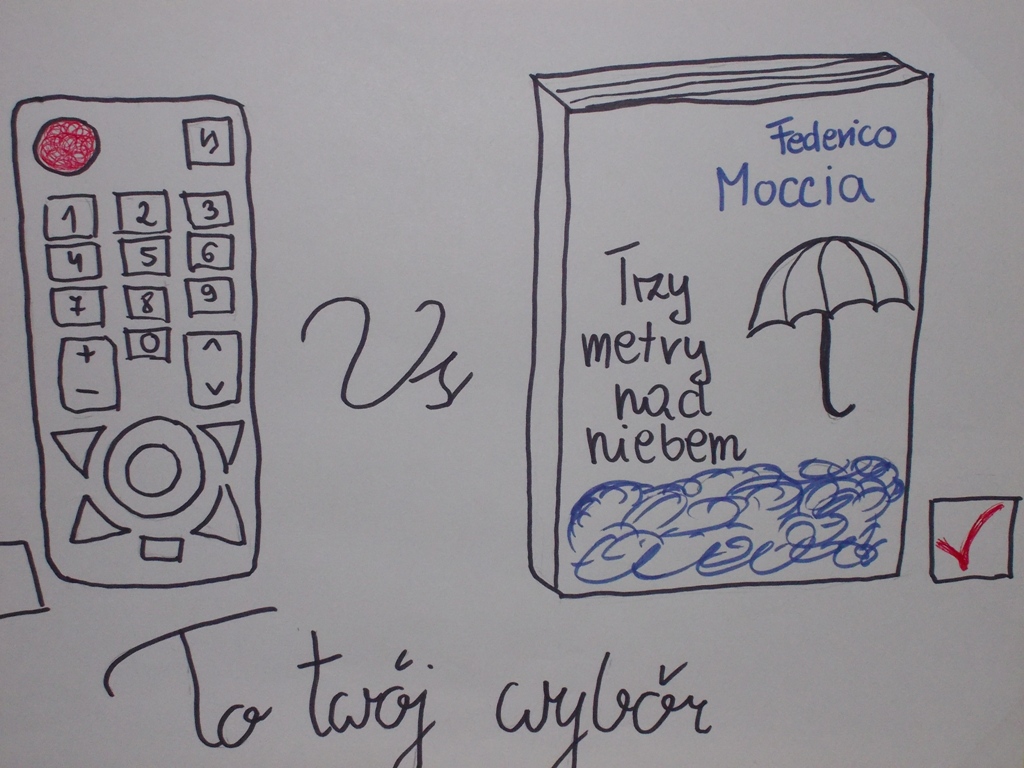 ל
1 2 3
4 5 6
7 8 9
+ 0 ^
- v
Vs
Federico
Moccia
Trzy
metry
nad
niebem
To twój wybór